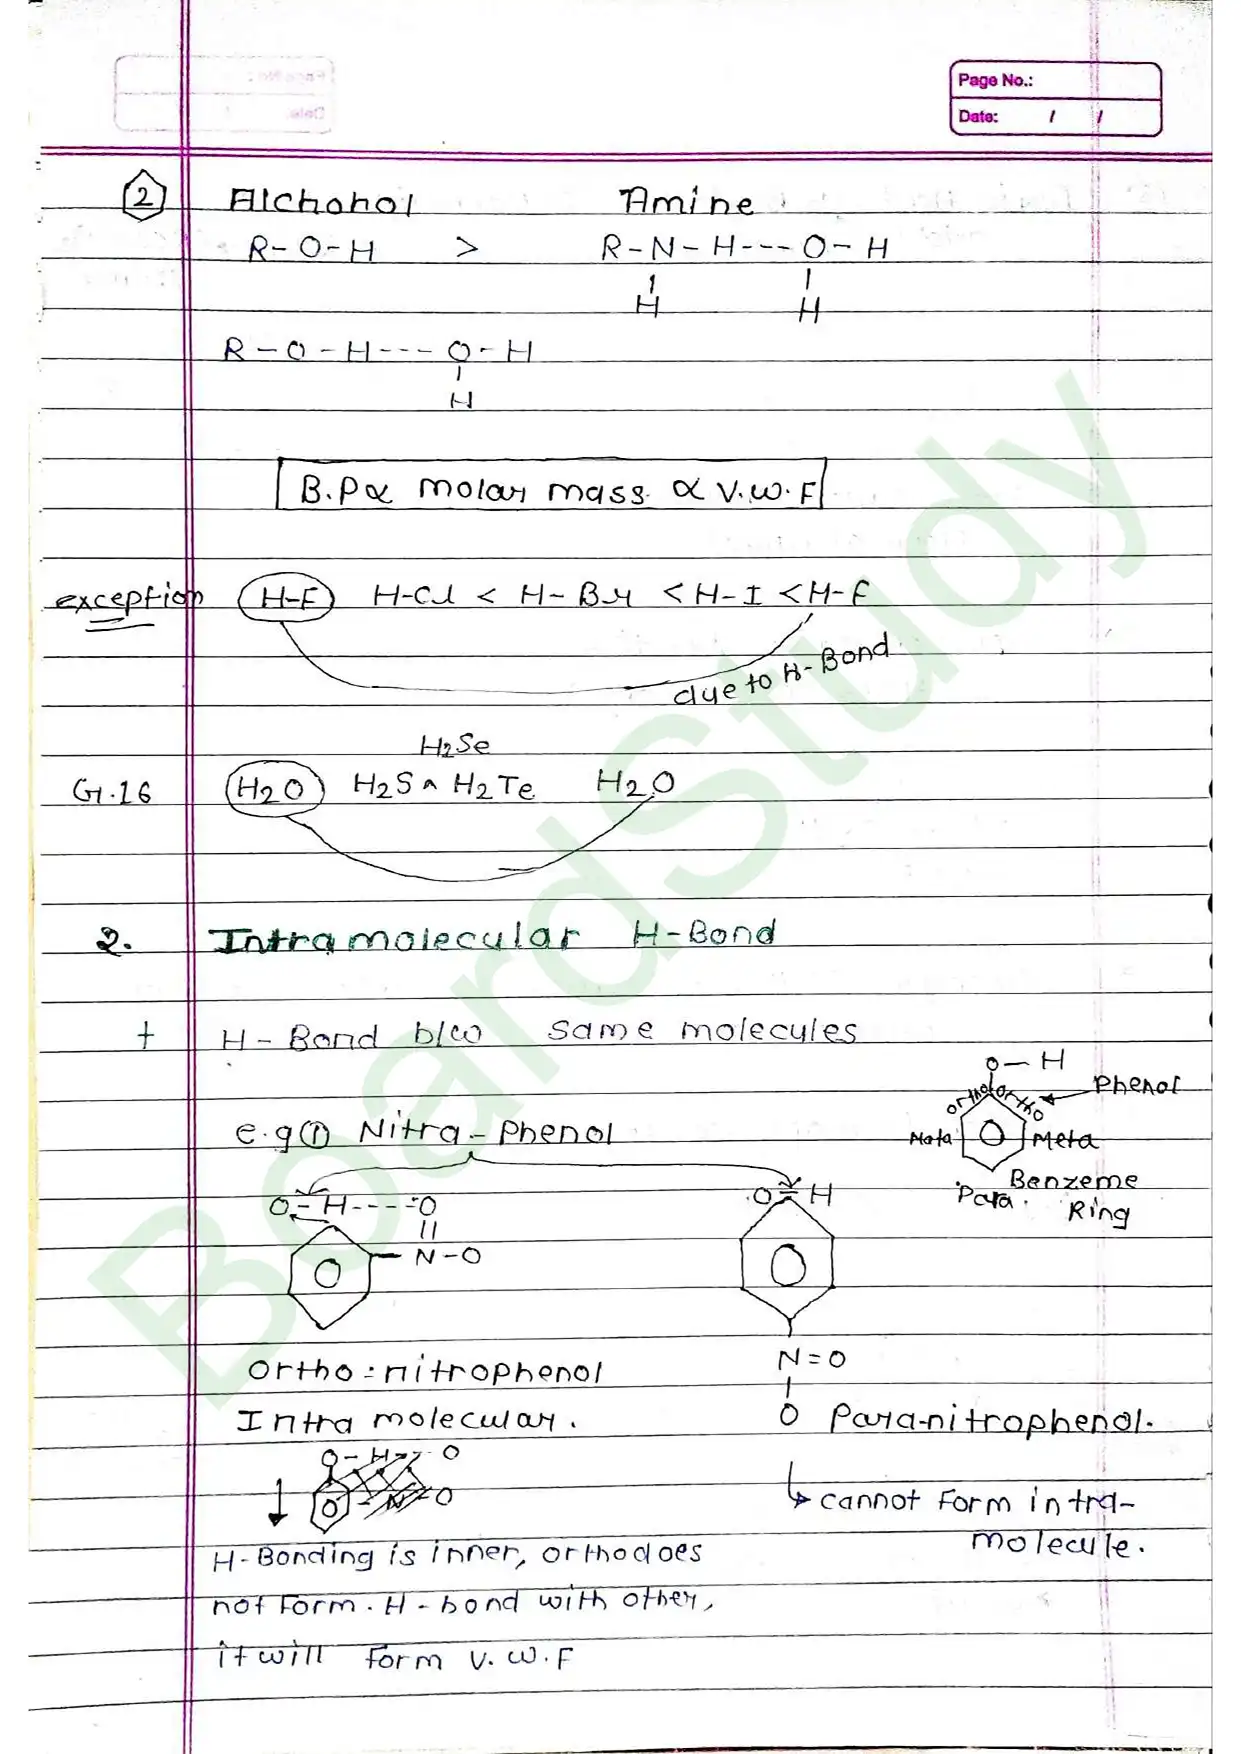 Page No.:
Date: / /
2 Alchohol Amine
R-O-H > R-N-H---O-H
H H
R-O-H---O-H
H
B.P ∝ molar mass ∝ V.W.F
exception H-F H-Cl < H-Br < H-I < H-F
due to H-Bond
H2Se
G.16 H2O H2S ^ H2Te H2O
2. Intramolecular H-Bond
+ H-Bond b/w same molecules
O-H
Phenol
ortho ortho
e.g ① Nitra-Phenol
Mata Meta
Benzeme
Para. Ring
O-H----O
O-H
N-O
Ortho-nitrophenol
N=O
Intra molecular.
O Para-nitrophenol.
O-H--O
N-O
cannot Form intra-
molecule.
H-Bonding is inner, ortho does
not Form. H-bond with other,
it will Form V.W.F
BoardStudy